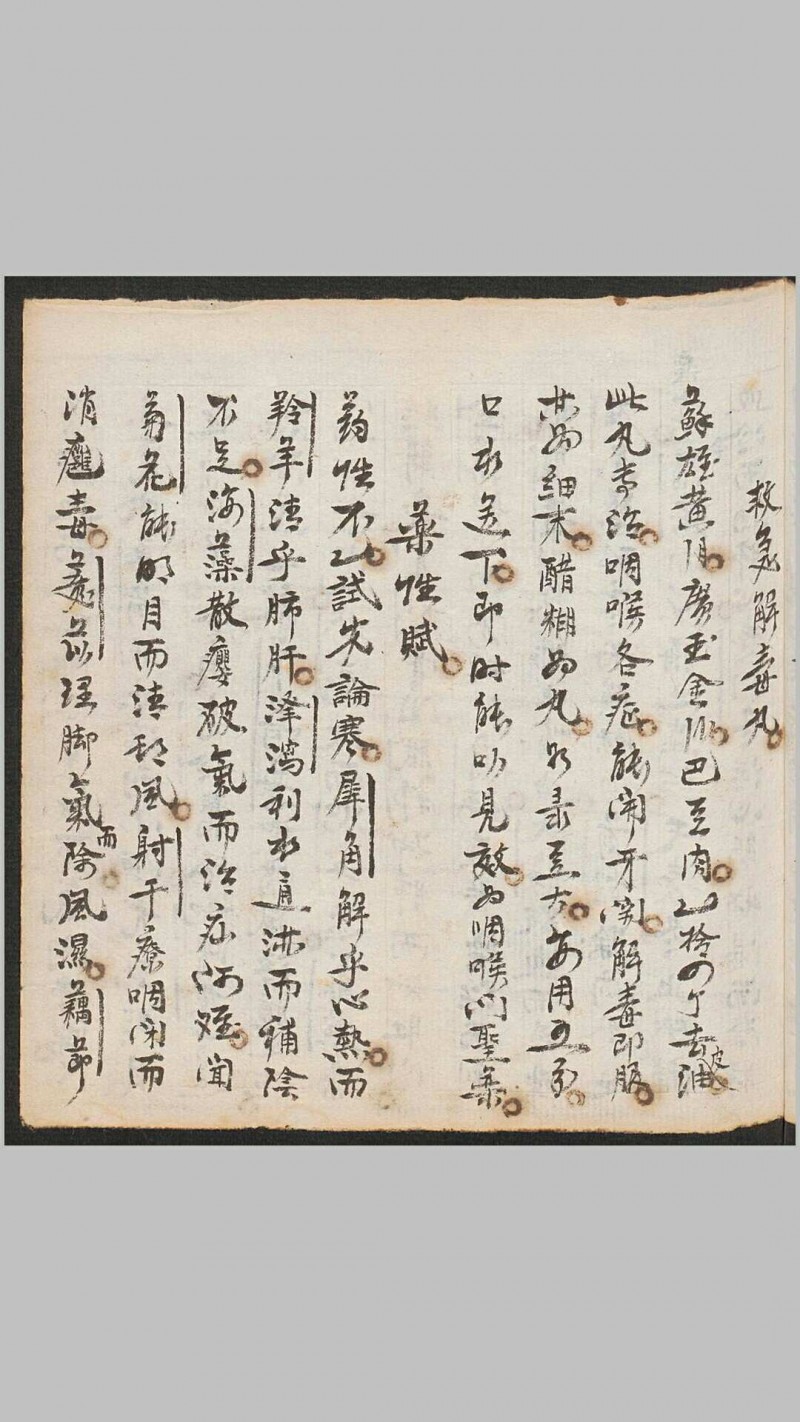 救急解毒丸
蘇雄黃 廣玉金 巴豆肉 拾四个去皮油
此丸專治咽喉各症能開牙関解毒即服
共為細末醋糊為丸如录豆大每用五分
口水送下即时能叨見效为咽喉門聖藥
藥性賦
药性不 試先論寒犀角解乎心熱而
羚羊清乎肺肝泽瀉利水通淋而補陰
不足海藻散癭破氣而治疝 难 聞
菊花能明目而清頭風射干療咽闭而
消癰毒薏苡理脚氣而除風濕藕节